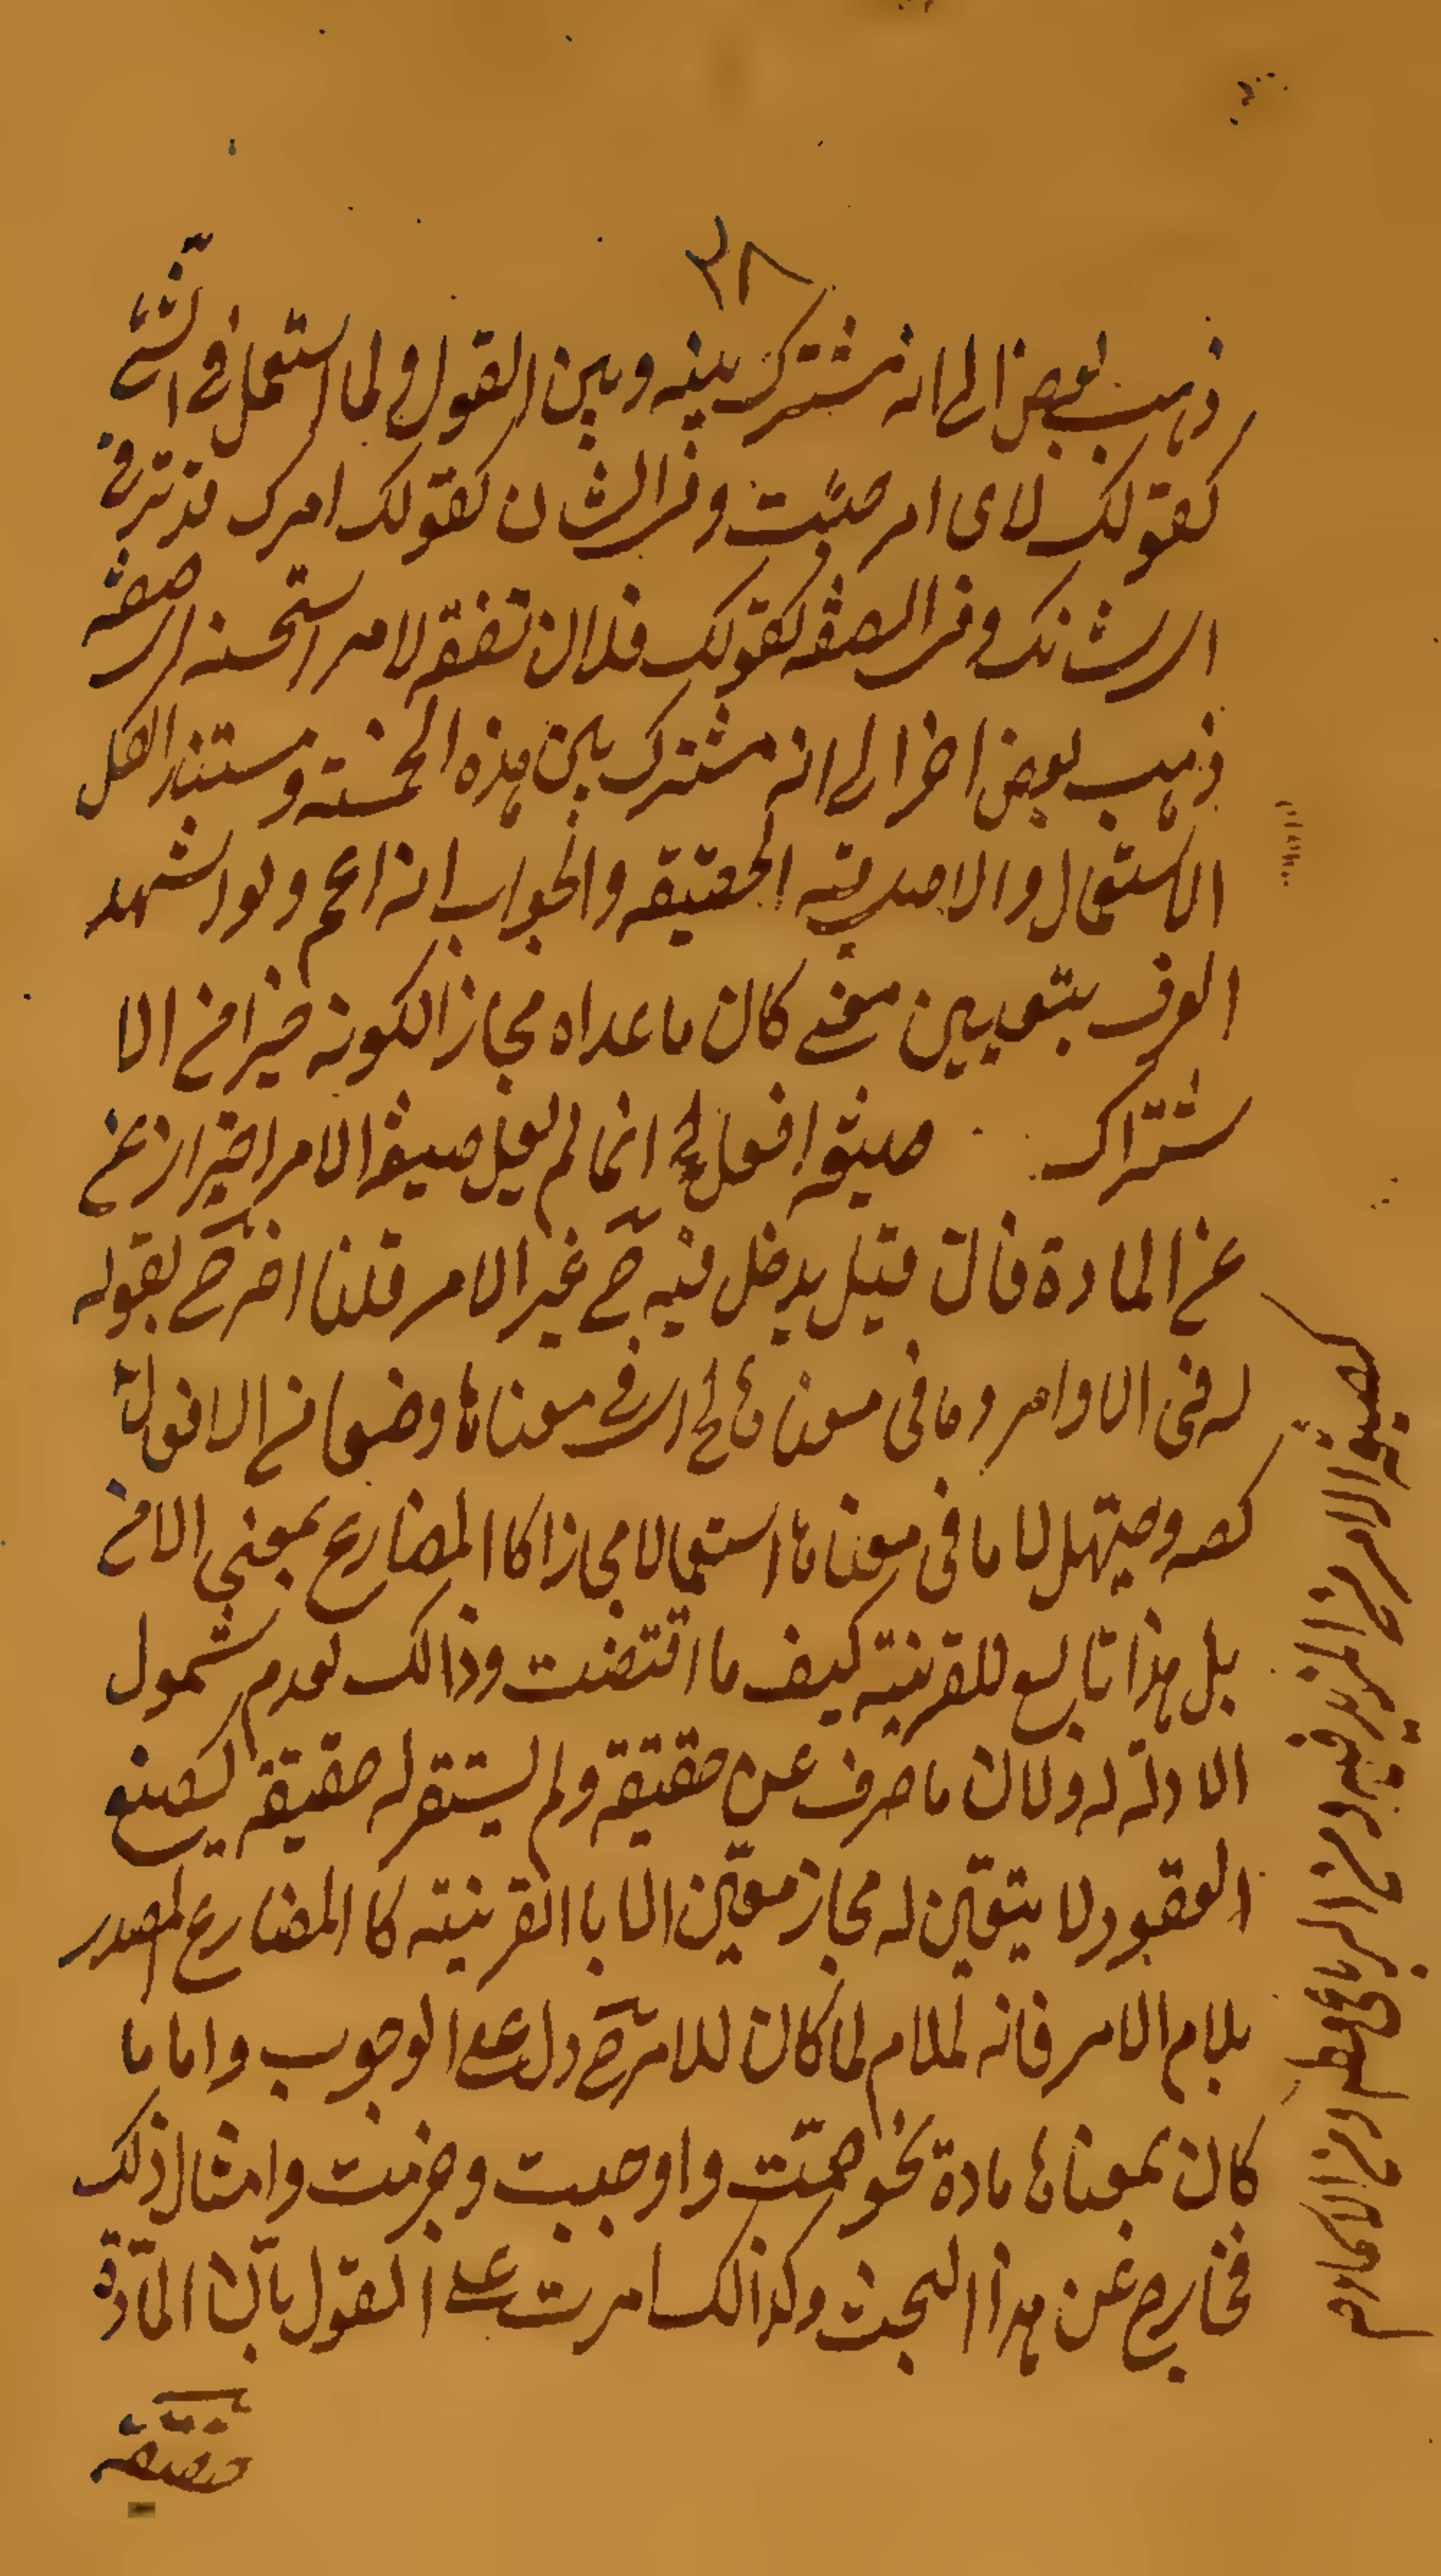 ٣٨
ذهب بعض الى انه مشترك بينه وبين القول ولما استعمل فى الشئ
كقولك لاى امر صبت وفى الشان كقولك امرك قد ترقى
اى شانك وفى الصفه كقولك فلان تفقه لامر استحسنه اى صفة
ذهب بعض اخر الى انه مشترك بين هذه الخمسة ومستند الكل
الاستعمال والاصل فيه الحقيقه والجواب انه اعم ولو اشتهد
العرف بتعيين معنى كان ما عداه مجازا لكونه خيرا من الا
شتراك صيغة افعل انما لم يقل صيغة الامر احترازا عن
عن المادة فان قيل يدخل فيه ح غير الامر قلنا اخرج بقوله
له فى الاوامر وما فى معناها اى فى معناها وضعا من الافعال
كصه وحيهل لا ما فى معناها استعمالا مجازا كا المضارع بمعنى الامر
بل هذا تابع للقرينة كيف ما اقتضت وذالك لعدم شمول
الادلة له ولان ما صرف عن حقيقة ولم يستقر له حقيقة كصيغ
العقود لا يتعين له مجاز معين الا باالقرينته كا المضارع المصدر
بلام الامر فانه لملام لما كان للامر ح دل على الوجوب واما ما
كان بمعناها مادة نحو حتمت واوجبت وجزمت وامثال ذلك
فخارج عن هذا البحث وكذالك امرت على القول بان المادة
حقيقة
صيغة الامر من المزيد فيه ومن الرباعى